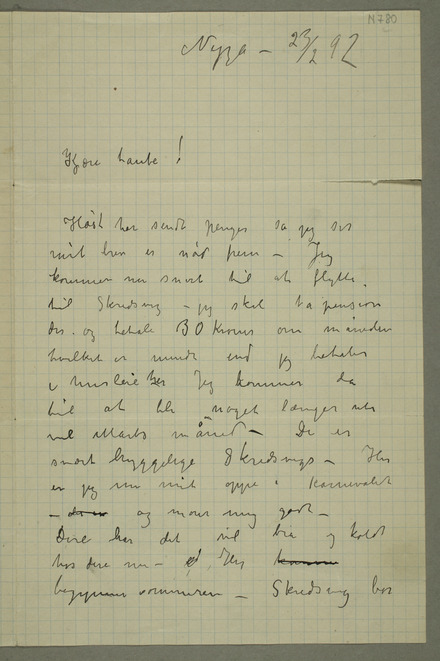 N 780
Nizza – 23/2 92
Kjære tante!
Høst har sendt penger så jeg ser
mit brev er nåd frem – Jeg
kommer nu snart til at flytte
til Skredsvig – jeg skal ta pension
der og betale 80 Kroner om måneden
hvilket er mindre end jeg betaler
i husleie her Jeg kommer da
til at bli noget længer
vel Marts måned – De er
snart hyggelige Skredsvigs – Her
er jeg nu mit oppe i Karnevalet
– og morer mig godt –
Dere har det vel bra og koldt
hos dere nu – Her
begynner sommeren – Skredsvig bor